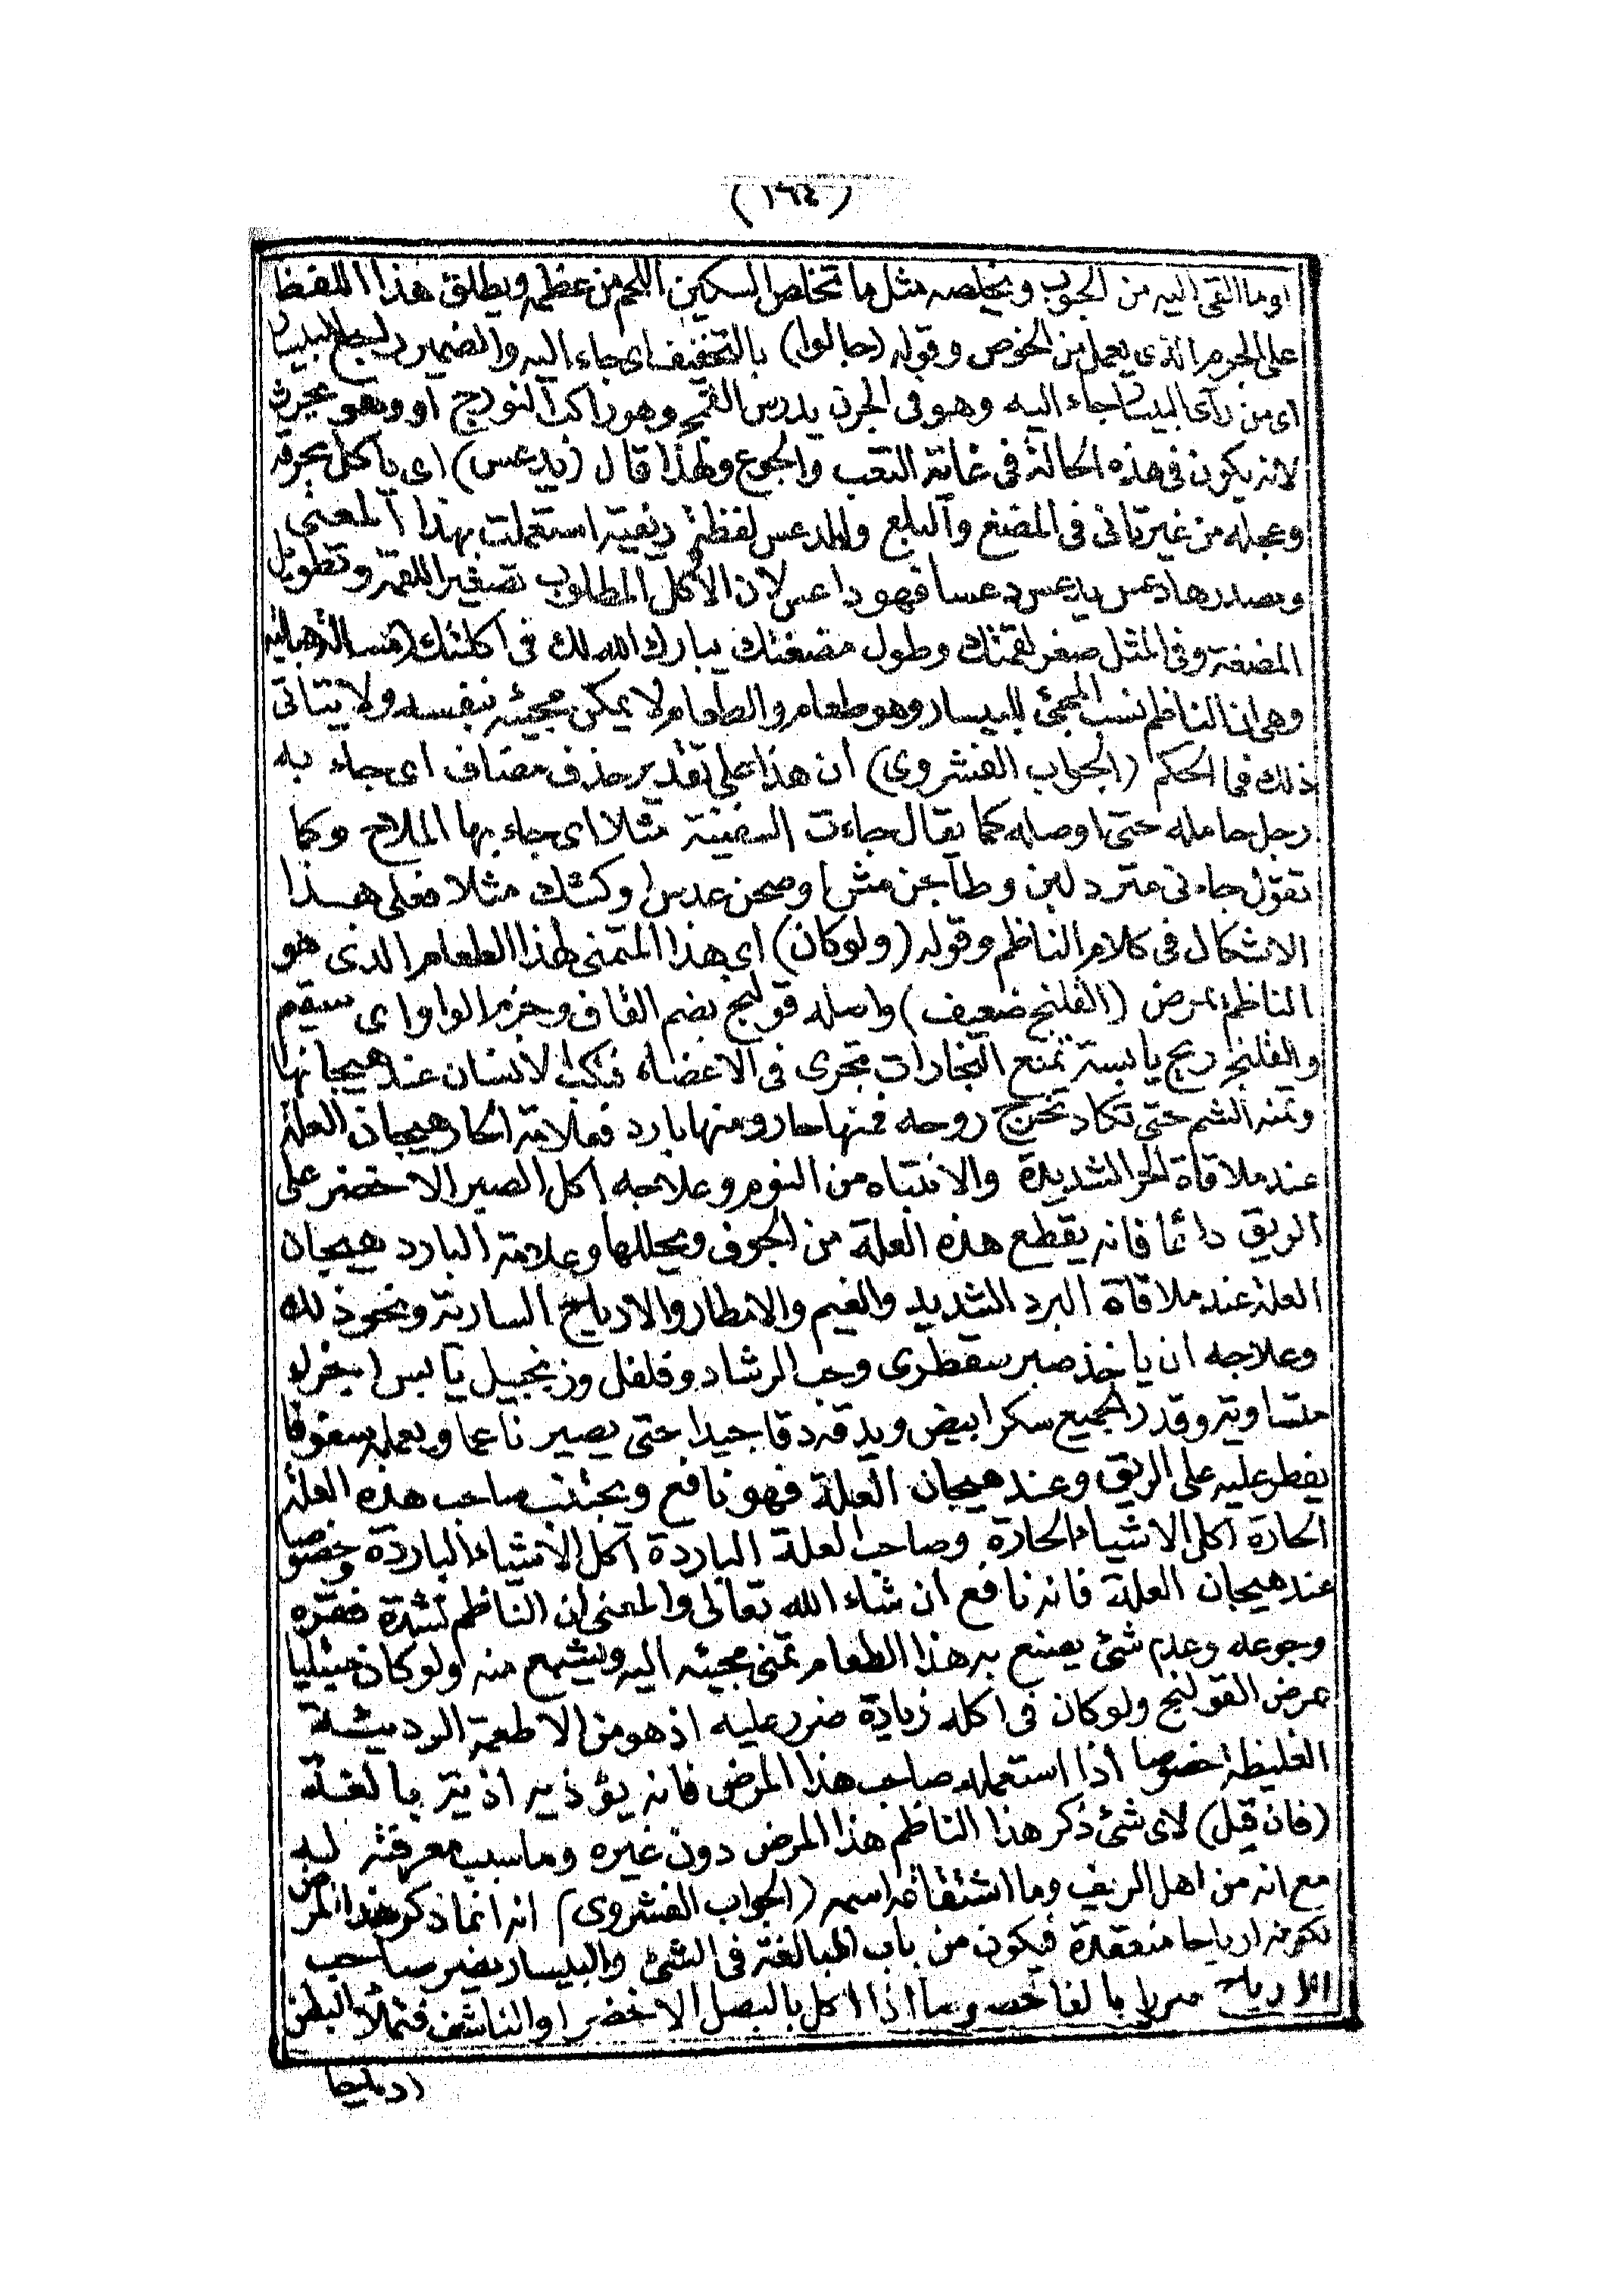 (١٦٤)
او ما القى اليه من الحبوب ويخلصه مثل ما تخلص السكين اللحم من عظمه ويطلق هذا اللفظ
على الجرم الذى يعمل من الخوص وقوله (جالوا) بالتخفيف اى جاء اليه والضمير راجع للبيسار
اى من رأى البيسار جاء اليه وهو فى الجرن يدرس القمح وهو راكب النورج او وهو يحرث
لانه يكون فى هذه الحالة فى غاية التعب والجوع ولهذا قال (يدعس) اى ياكل بحرقة
وعجله من غير تانى فى المضغ والبلع والمدعس لفظة ريفية استعملت بهذا المعنى
ومصدرها دعس يدعس دعسا فهو داعس لان الأكل المطلوب تصغير اللقمة وتطويل
المضغة وفى المثل صغر لقمتك وطول مضغتك يبارك الله لك فى اكلتك (مسالة هبالية)
وهى ان الناظم نسب المجئ للبيسار وهو طعام والطعام لا يمكن مجيئه بنفسه ولا يتاتى
ذلك فما الحكم (الجواب الفشروى) ان هذا على تقدير حذف مضاف اى جاء به
رجل حامله حتى اوصله كما يقال جاءت السفينة مثلا اى جاء بها الملاح وكما
تقول جاءنى مترد لبن وطاجن مش او صحن عدس او كشك مثلا فعلى هذا
الاشكال فى كلام الناظم وقوله (ولو كان) اى هذا المتمنى لهذا الطعام الذى هو
الناظم بمرض (القلنج ضعيف) واصله قولنج بضم القاف وجزم الواو اى سقيم
والقلنج ريح يابسة تمنع البخارات تجرى فى الاعضاء فتكب الانسان عند هيجانها
وتمنه الشم حتى تكاد تخرج روحه فمنها حار ومنها بارد فعلامة الحار هيجان العلة
عند ملاقاة الحر الشديدة والانتباه من النوم وعلاجه اكل الصبر الاخضر على
الريق دائما فانه يقطع هذه العلة من الجوف ويحللها وعلامة البارد هيجان
العلة عند ملاقاة البرد الشديد والغيم والامطار والارياح الساريه ونحو ذلك
وعلاجه ان ياخذ صبر سقطرى وحب الرشاد وفلفل وزنجبيل يابس اجزاء
متساوية وقدر الجميع سكر ابيض ويدقه دقا جيدا حتى يصير ناعما ويعمله سفوفا
يفطر عليه على الريق وعند هيجان العلة فهو نافع ويجتنب صاحب هذه العلة
الحارة اكل الاشياء الحارة وصاحب العلة الباردة اكل الاشياء الباردة وخصوصا
عند هيجان العلة فانه نافع ان شاء الله تعالى والمعنى ان الناظم لشدة فقره
وجوعه وعدم شئ يصنع به هذا الطعام تمنى مجيئه اليه ويشبع منه ولو كان مبتليا
بمرض القولنج ولو كان فى اكله زيادة ضرر عليه اذ هو من الاطعمة الرديئة
الغليظة خصوصا اذا استعمله صاحب هذا المرض فانه يؤذيه اذية بالغة
(فان قيل) لاى شئ ذكر هذا الناظم هذا المرض دون غيره وما سبب معرفته ليه
مع انه من اهل الريف وما اشتقاق اسمه (الجواب الفشروى) انه انما ذكر هذا المرض
لكونه ارياحا منعقدة فيكون من باب المبالغة فى الشئ والبيسار يضر صاحب
الارياح ضررا بالغا خصوصا اذا اكل بالبصل الاخضر او الناشف فتملأ البطن